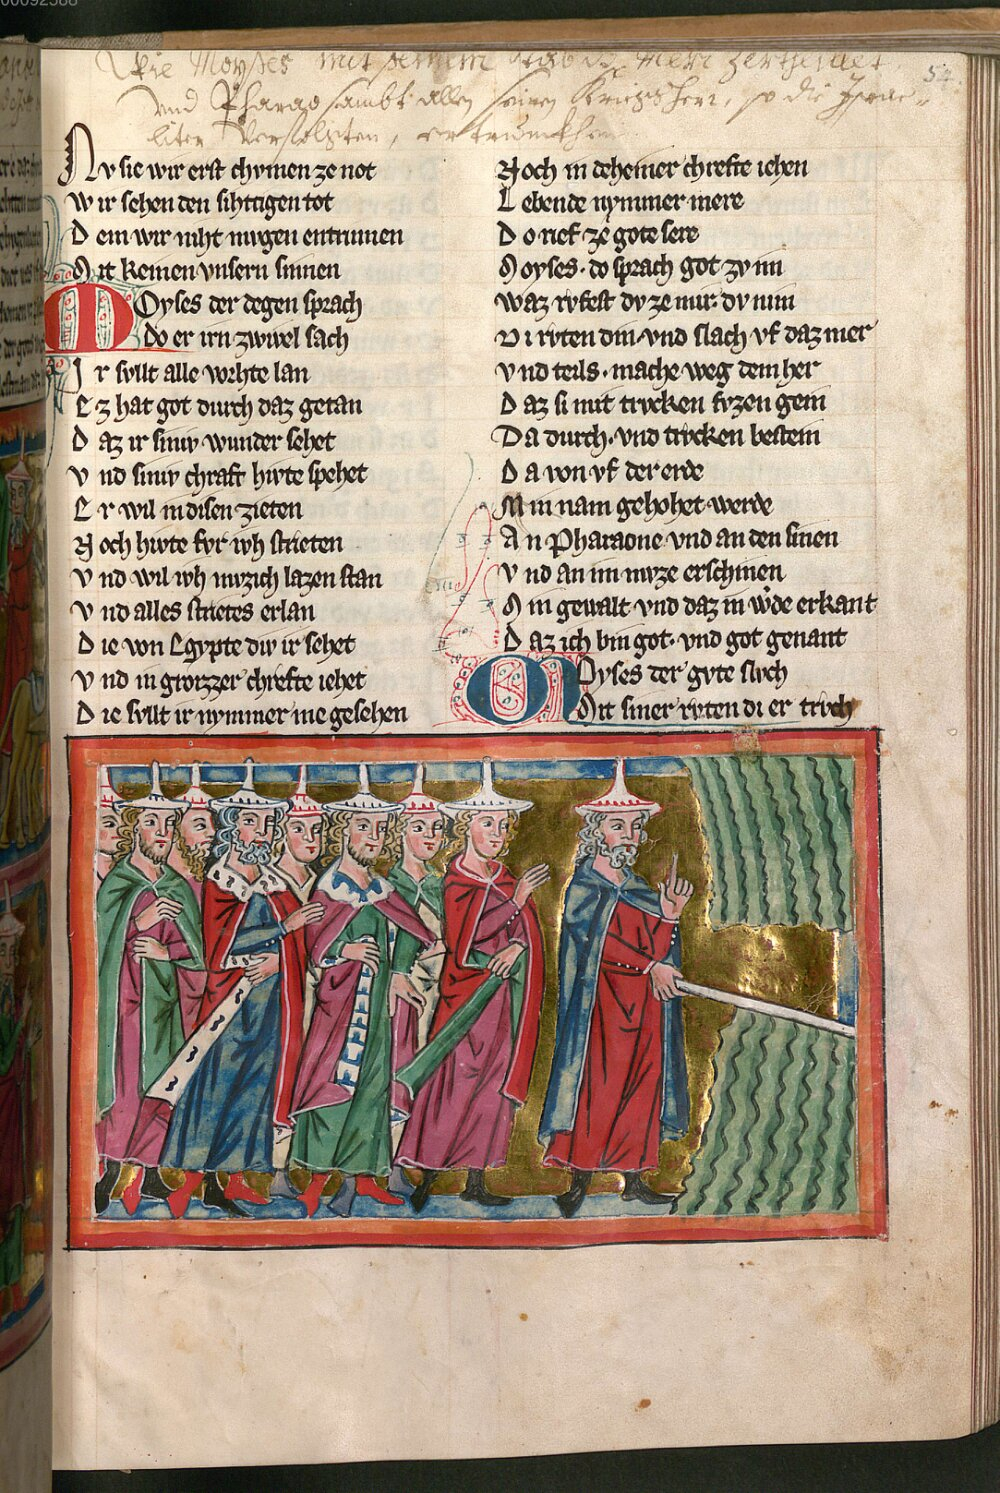 00092588
54.
Wie Moyses mit seinem stab das Meer zertheillet,
vnd Pharao sambt allen seinen Kriegsheer, so die Israe-
liter verfolgten, ertrunckhen
Nv sie wir erst chvmen ze not
Wir sehen den sihttigen tot
Dem wir niht mvgen entrinnen
Mit keinen vnsern sinnen
Moyses der degen sprach
Do er irn zwivel sach
Ir svllt alle vorhte lan
Ez hat got durch daz getan
Daz ir siniv wunder sehet
Vnd siniv chraft hivte spehet
Er wil in disen zieten
Noch hivte fvr ivh strieten
Vnd wil ivh mvzich lazen stan
Vnd alles strietes erlan
Die von Egypte div ir sehet
Vnd in grozzer chrefte iehet
Die svllt ir nymmer me gesehen
Noch in deheiner chrefte iehen
Lebende nymmer mere
Do rief ze gote sere
Moyses. do sprach got zv im
Waz rvfest dv ze mir. dv nim
Di rvten din. vnd slach vf daz mer
Vnd teils. mache weg dem her
Daz si mit trvcken fvzen gein
Da durch. vnd trvcken bestein
Da von vf der erde
Min nam gehohet werde
An Pharaone vnd an den sinen
Vnd an im mvze erschinen
Min gewalt. vnd daz in wde erkant
Daz ich bin got. vnd got genant
Moyses der gvte slvch
Mit siner rvten di er trvch